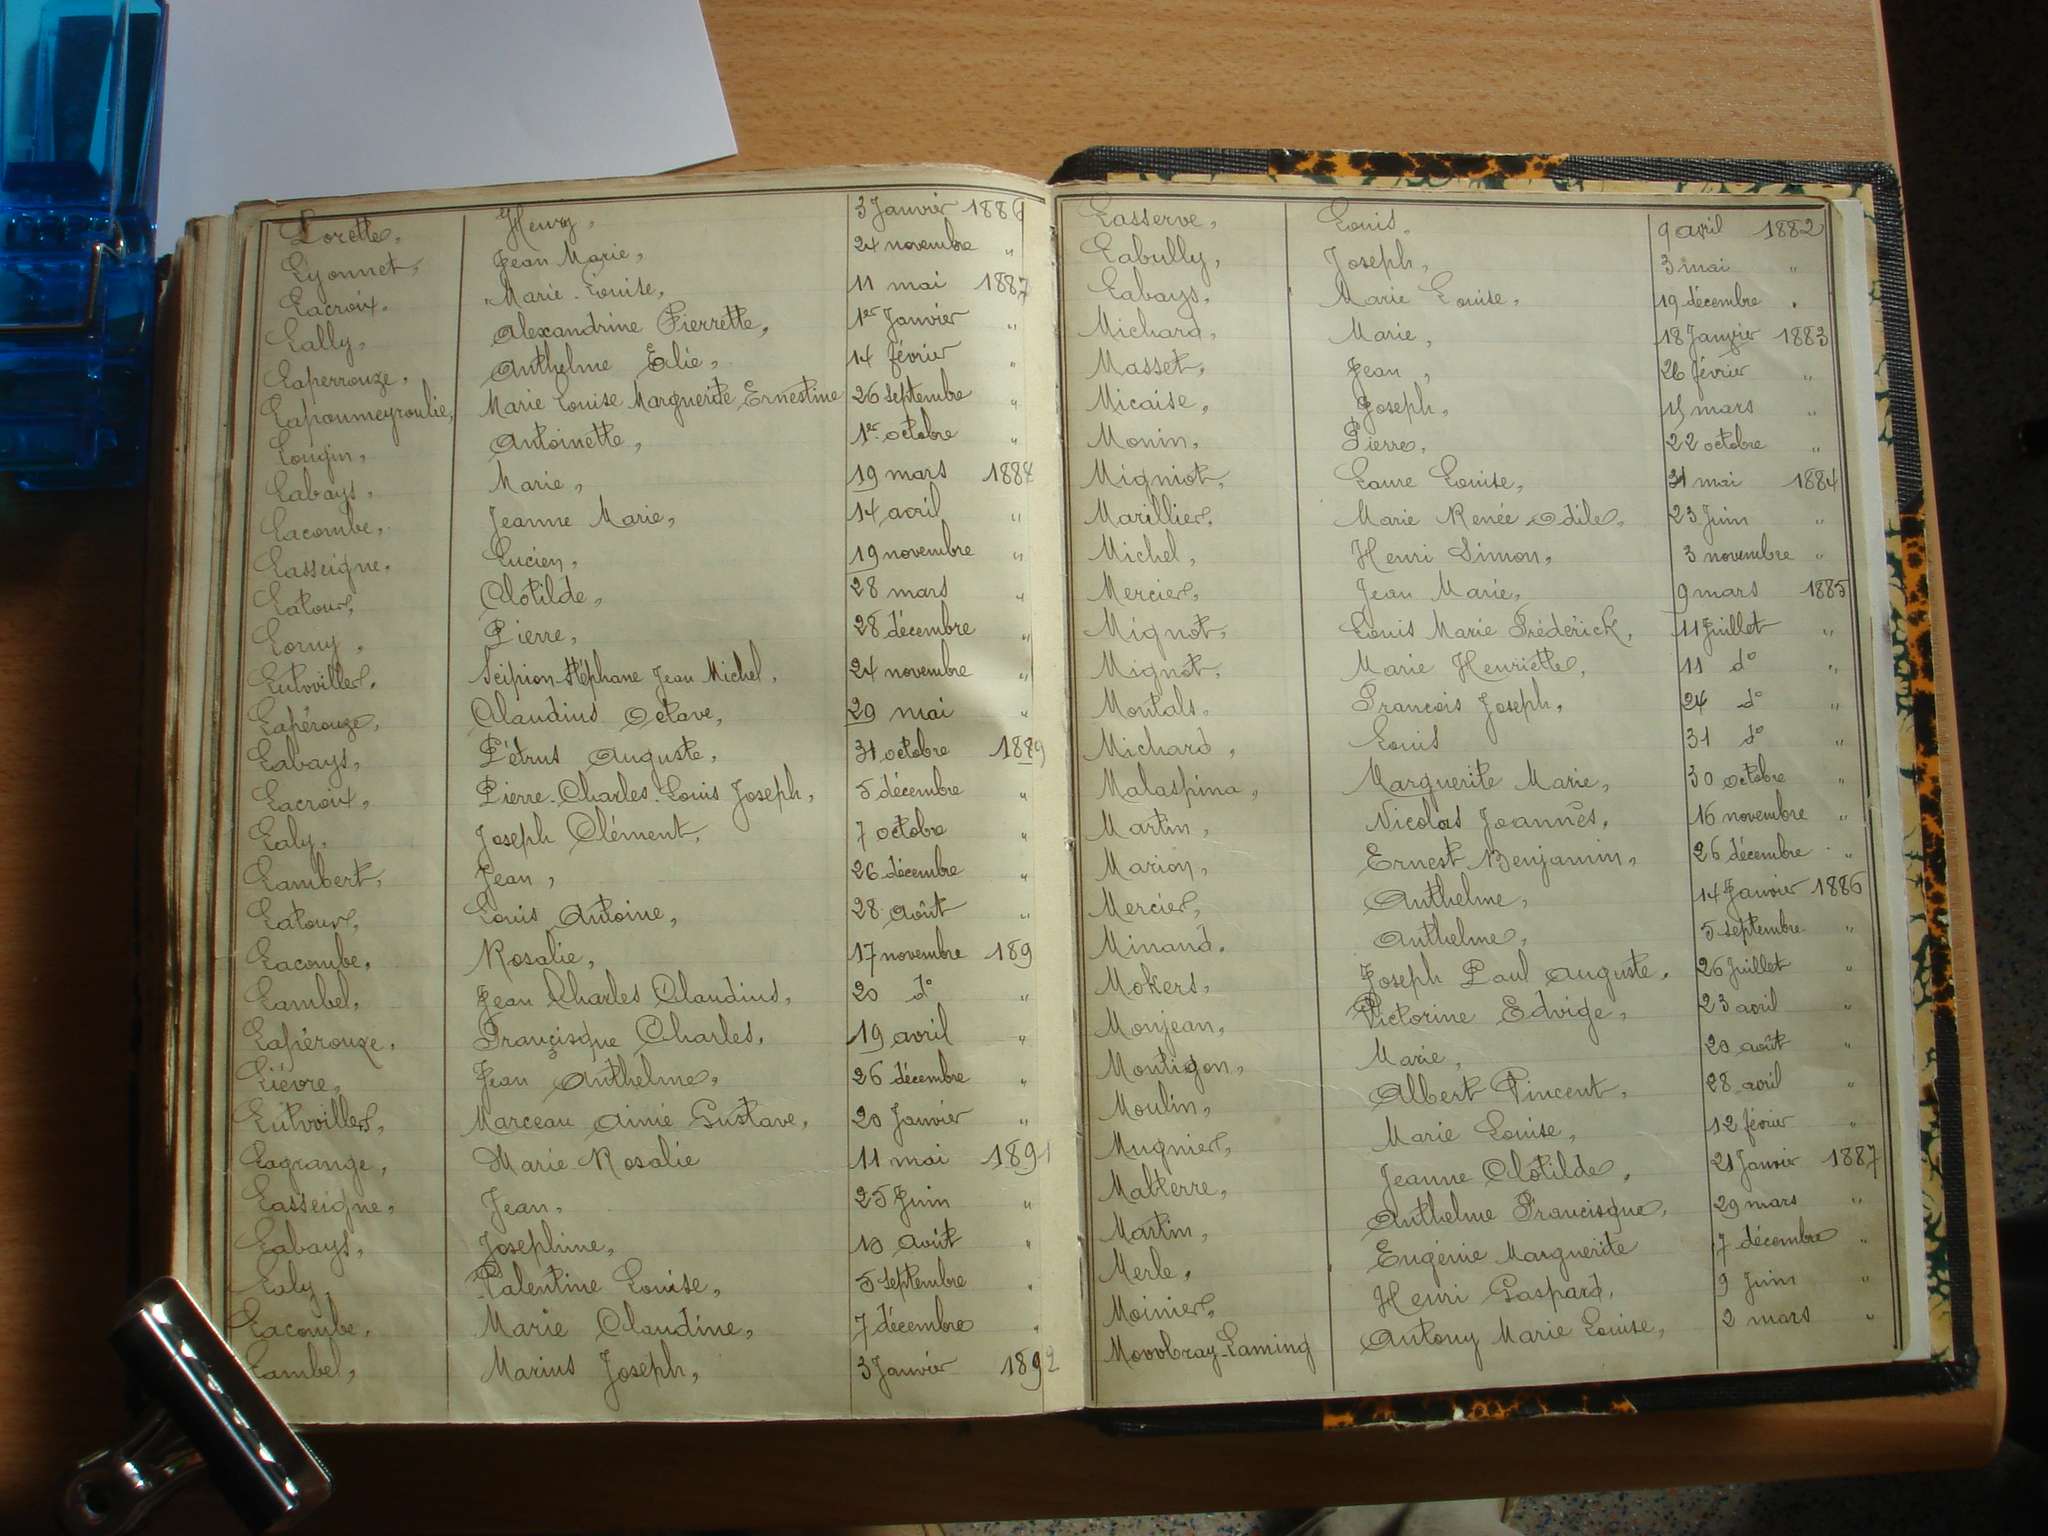 Lorette, Henry, 3 Janvier 1886
Lyonnet, Jean Marie, 24 novembre "
Lacroix, Marie-Louise, 11 mai 1887
Lally, Alexandrine Pierrette, 1er Janvier "
Laperrouze, Anthelme Elie, 14 février "
Lapoumeyroulie, Marie Louise Marguerite Ernestine 26 septembre "
Lougin, Antoinette, 1er octobre "
Labays, Marie, 19 mars 1888
Lacombe, Jeanne Marie, 14 avril "
Lasseigne, Lucien, 19 novembre "
Latour, Clotilde, 28 mars "
Lorny, Pierre, 28 décembre "
Lutoviller, Scipion Stéphane Jean Michel, 24 novembre "
Lapérouze, Claudius Octave, 29 mai "
Labays, Pétrus Auguste, 31 octobre 1889
Lacroix, Pierre-Charles-Louis Joseph, 5 décembre "
Laly, Joseph Clément, 7 octobre "
Lambert, Jean, 26 décembre "
Latour, Louis Antoine, 28 août "
Lacombe, Rosalie, 17 novembre 189
Lambel, Jean Charles Claudius, 20 d° "
Lapérouze, Françisque Charles, 19 avril "
Lièvre, Jean Anthelme, 26 décembre "
Lutoviller, Marceau Aimé Gustave, 20 Janvier "
Lagrange, Marie Rosalie 11 mai 1891
Lasseigne, Jean, 25 Juin "
Labays, Josephine, 10 Août "
Laly, Valentine Louise, 5 septembre "
Lacombe, Marie Claudine, 7 décembre "
Lambel, Marius Joseph, 3 Janvier 1892
Lasserve, Louis, 9 avril 1882
Labully, Joseph, 3 mai "
Labays, Marie Louise, 19 décembre "
Michard, Marie, 18 Janvier 1883
Masset, Jean, 26 février "
Micaise, Joseph, 15 mars "
Monin, Pierre, 22 octobre "
Migniot, Laure Louise, 31 mai 1884
Marillier, Marie Renée Odile, 23 Juin "
Michel, Henri Simon, 3 novembre "
Mercier, Jean Marie, 9 mars 1885
Mignot, Louis Marie Frédérick, 11 Juillet "
Mignot, Marie Henriette, 11 d° "
Montals, Francois Joseph, 24 d° "
Michard, Louis 31 d° "
Malaspina, Marguerite Marie, 30 octobre "
Martin, Nicolas Joannès, 16 novembre "
Marion, Ernest Benjamin, 26 décembre "
Mercier, Anthelme, 14 Janvier 1886
Minand, Anthelme, 5 septembre "
Mokers, Joseph Paul Auguste, 26 Juillet "
Monjean, Victorine Edvige, 23 avril "
Montigon, Marie, 20 août "
Moulin, Albert Vincent, 28 avril "
Mugnier, Marie Louise, 12 février "
Malterre, Jeanne Clotilde, 21 Janvier 1887
Martin, Anthelme Francisque, 29 mars "
Merle, Eugénie Marguerite 7 décembre "
Moinier, Henri Gaspard, 9 Juin "
Movvbray-Laming Antony Marie Louise, 2 mars "